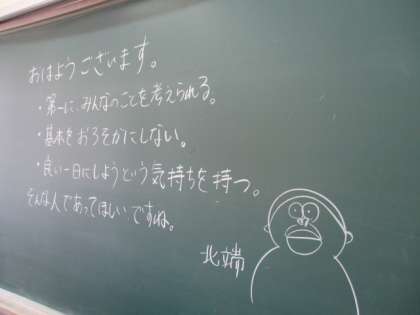 おはようございます。
・第一に、みんなのことを考えられる。
・基本をおろそかにしない。
・良い一日にしようという気持ちを持つ。
そんな人であってほしいですね。
北端